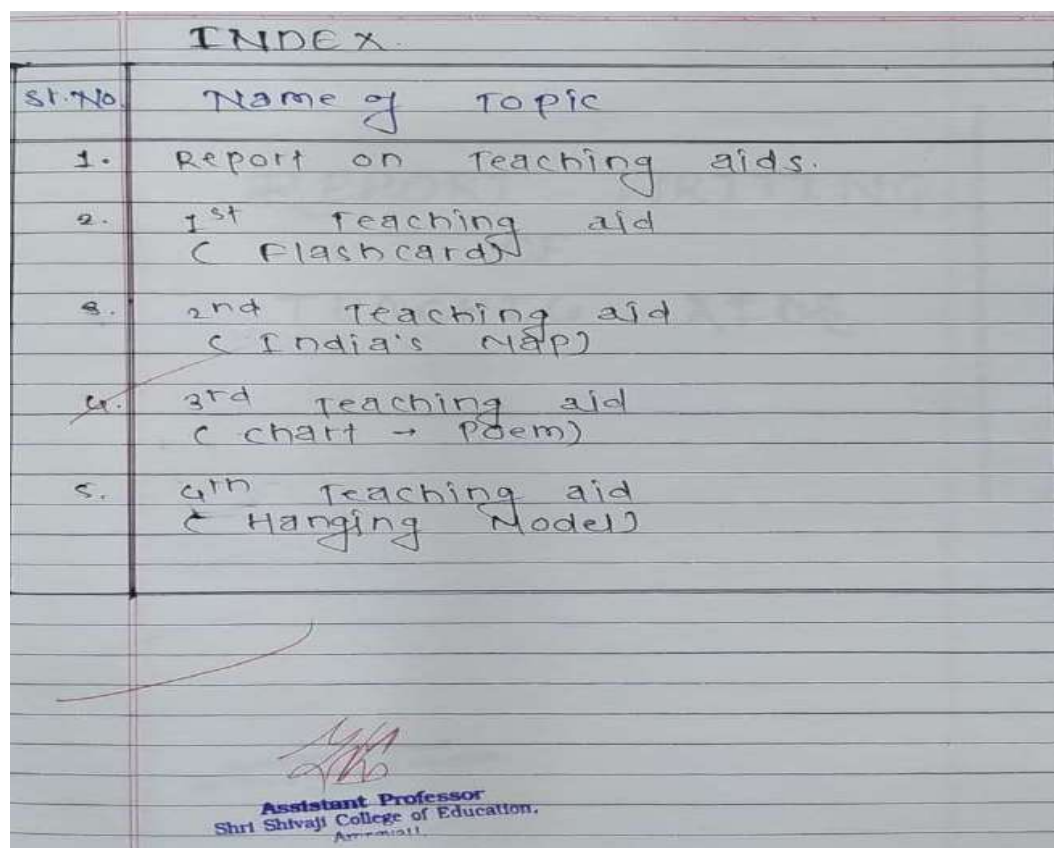 INDEX.
Sr.No. Name of Topic
1. Report on Teaching aids.
2. 1st Teaching aid
( Flashcard)
3. 2nd Teaching aid
( India's Map)
4. 3rd Teaching aid
( chart → Poem)
5. 4th Teaching aid
( Hanging Model)
Assistant Professor
Shri Shivaji College of Education,